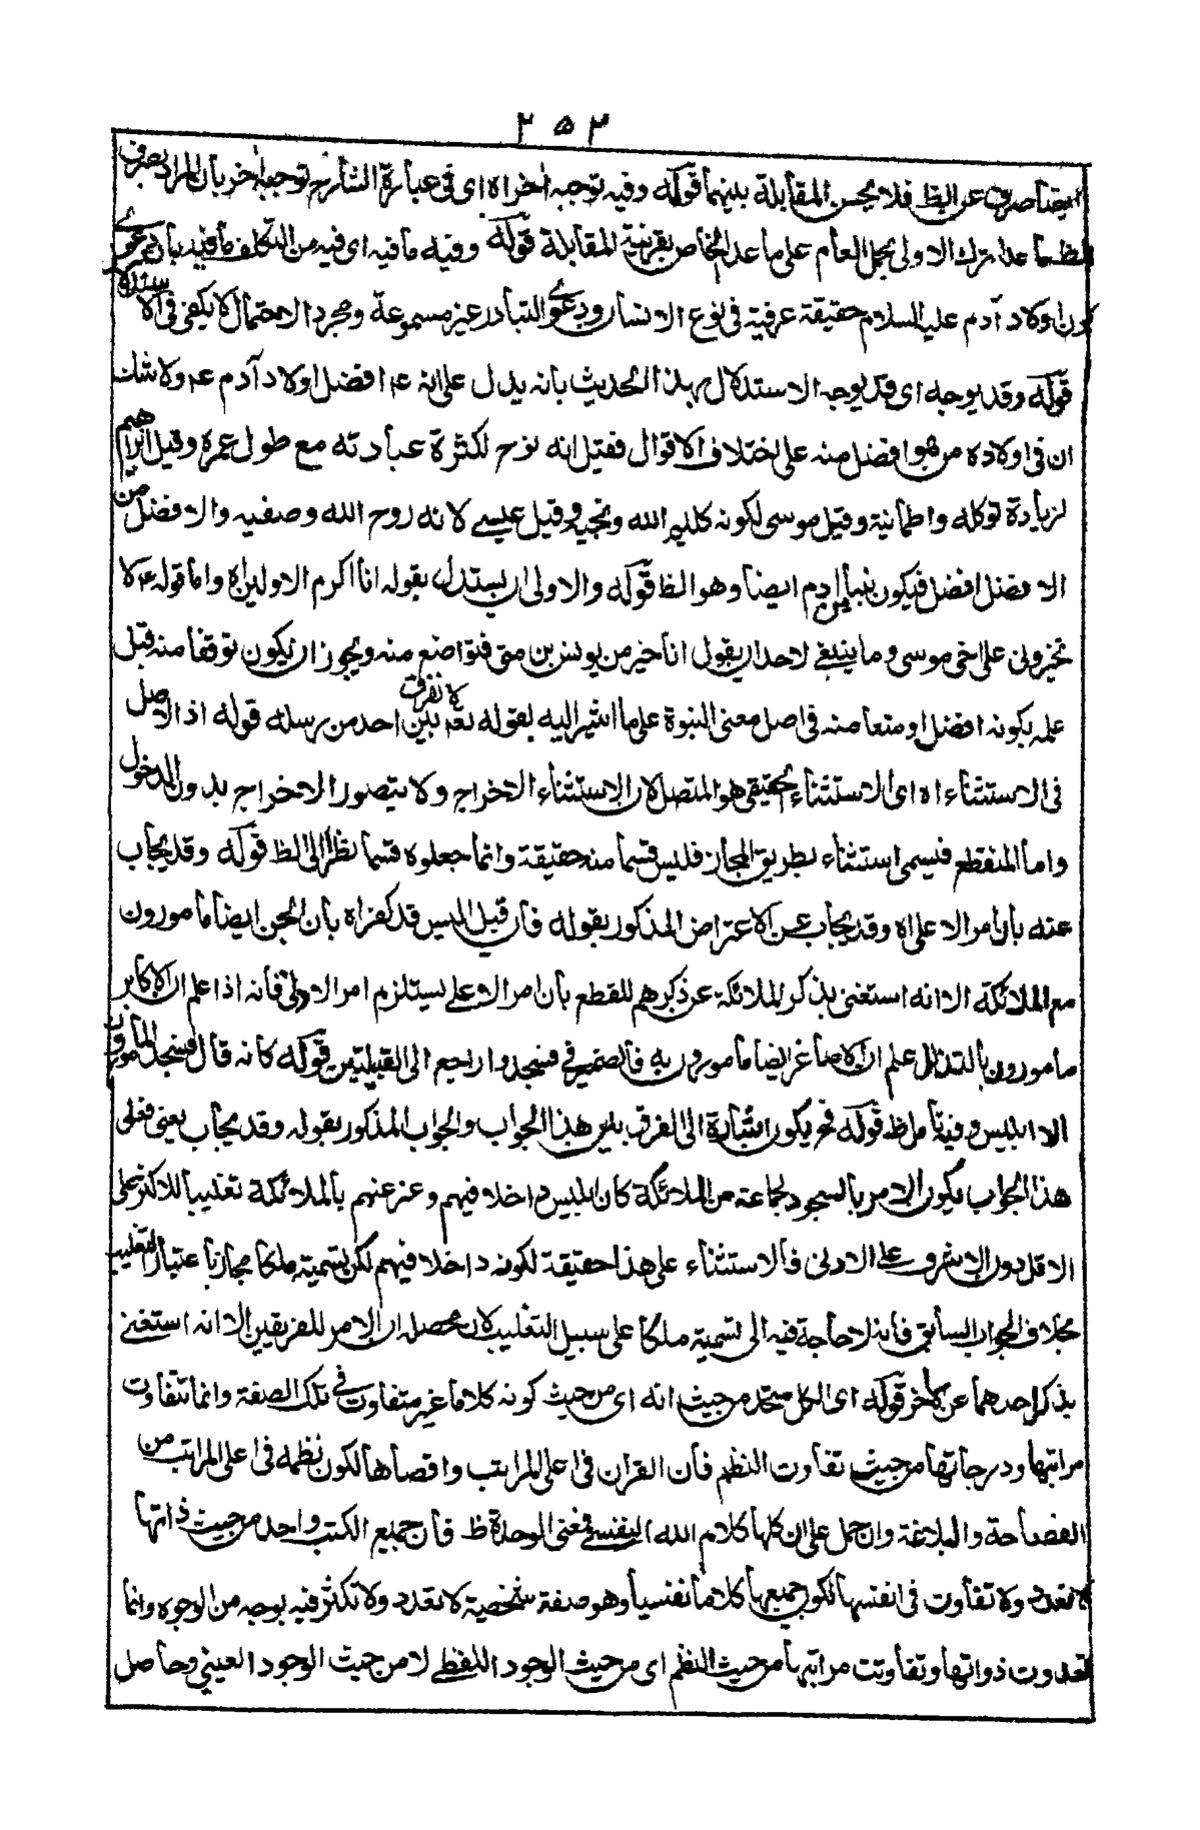 ٢٥٢
ايضا صرف عن الظ فلا يحسن المقابلة بينهما قوله وفيه توجيه اخر اه اى فى عبارة الشارح توجيه اخر بان المراد بصرف
الظ ما عدا ترك الاولى بحمل العام على ما عدا الخاص بقرينة المقابلة قوله وفيه ما فيه اى فيه من التكلف ما فيه بان دعوى
كون اولاد آدم عليه السلام حقيقة عرفية فى نوع الانسان ودعوى التبادر غير مسموعة ومجرد الاحتمال لا يكفى فى الاستدلال
قوله وقد يوجه اى قد يوجه الاستدلال بهذا الحديث بانه يدل على انه عم افضل اولاد آدم عم ولا شك
ان فى اولاده من هو افضل منه على اختلاف الاقوال فقيل انه نوح لكثرة عبادته مع طول عمره وقيل ابراهيم
لزيادة توكله واطمانية وقيل موسى لكونه كليم الله ونجيه وقيل عيسى لانه روح الله وصفيه والافضل من
الافضل افضل فيكون نبينا من ادم ايضا وهو الظ قوله والاولى ان يستدل بقوله انا اكرم الاولين اه واما قوله عم لا
تخيرونى على اخى موسى وما ينبغى لاحد ان يقول انا خير من يونس بن متى فتواضع منه ويجوز ان يكون توقفا منه قبل
علمه بكونه افضل او منعا منه فى اصل معنى النبوة على ما اشير اليه بقوله تعه لا نفرق بين احد من رسله قوله اذ الاصل
فى الاستثناء اه اى الاستثناء الحقيقى هو المتصل لان الاستثناء الاخراج ولا يتصور الاخراج بدون الدخول
واما المنقطع فيسمى استثناء بطريق المجاز فليس قسما منه حقيقة وانما جعلوه قسما نظرا الى الظ قوله وقد يجاب
عنه بان امر الاعلى اه وقد يجاب عن الاعتراض المذكور بقوله فان قيل ابليس قد كفر اه بان الجن ايضا مامورون
مع الملائكة الا انه استغنى بذكر الملائكة عن ذكرهم للقطع بان امر الاعلى يستلزم امر الادنى فانه اذا علم ان الاكابر
مامورون بالتذلل علم ان الاصاغر ايضا مامورون به فالضمير فى فسجدوا راجع الى القبيلتين قوله كانه قال فسجد المامورون
الا ابليس وفيه تامل ظ قوله فح يكون اشارة الى الفرق بين هذا الجواب والجواب المذكور بقوله وقد يجاب يعنى فعلى
هذا الجواب يكون الامر بالسجود لجماعة من الملائكة كان ابليس داخلا فيهم وعبر عنهم بالملائكة تغليبا للاكثر على
الاقل دون الاشرف على الادنى فالاستثناء على هذا حقيقة لكونه داخلا فيهم لكن تسميته ملكا مجاز باعتبار التغليب
بخلاف الجواب السابق فانه لا حاجة فيه الى تسميته ملكا على سبيل التغليب لان محصله ان الامر للفريقين الا انه استغنى
بذكر احدهما عن الاخر قوله اى الكل متحد من حيث انه اى من حيث كونه كلاما غير متفاوت فى تلك الصفة وانما تتفاوت
مراتبها ودرجاتها من حيث تفاوت النظم فان القران فى اعلى المراتب واقصاها لكون نظمه فى اعلى المراتب من
الفصاحة والبلاغة وان حمل على ان كلها كلام الله النفسى فمعنى الوحدة ظ فان جميع الكتب واحد من حيث ذاتها
لا تعدد ولا تفاوت فى انفسها لكون جميعها كلاما نفسيا وهو صفة شخصية لا تعدد ولا تكثر فيه بوجه من الوجوه وانما
تعدد ذواتها وتفاوتت مراتبها من حيث النظم اى من حيث الوجود اللفظى لا من حيث الوجود العينى وحاصل